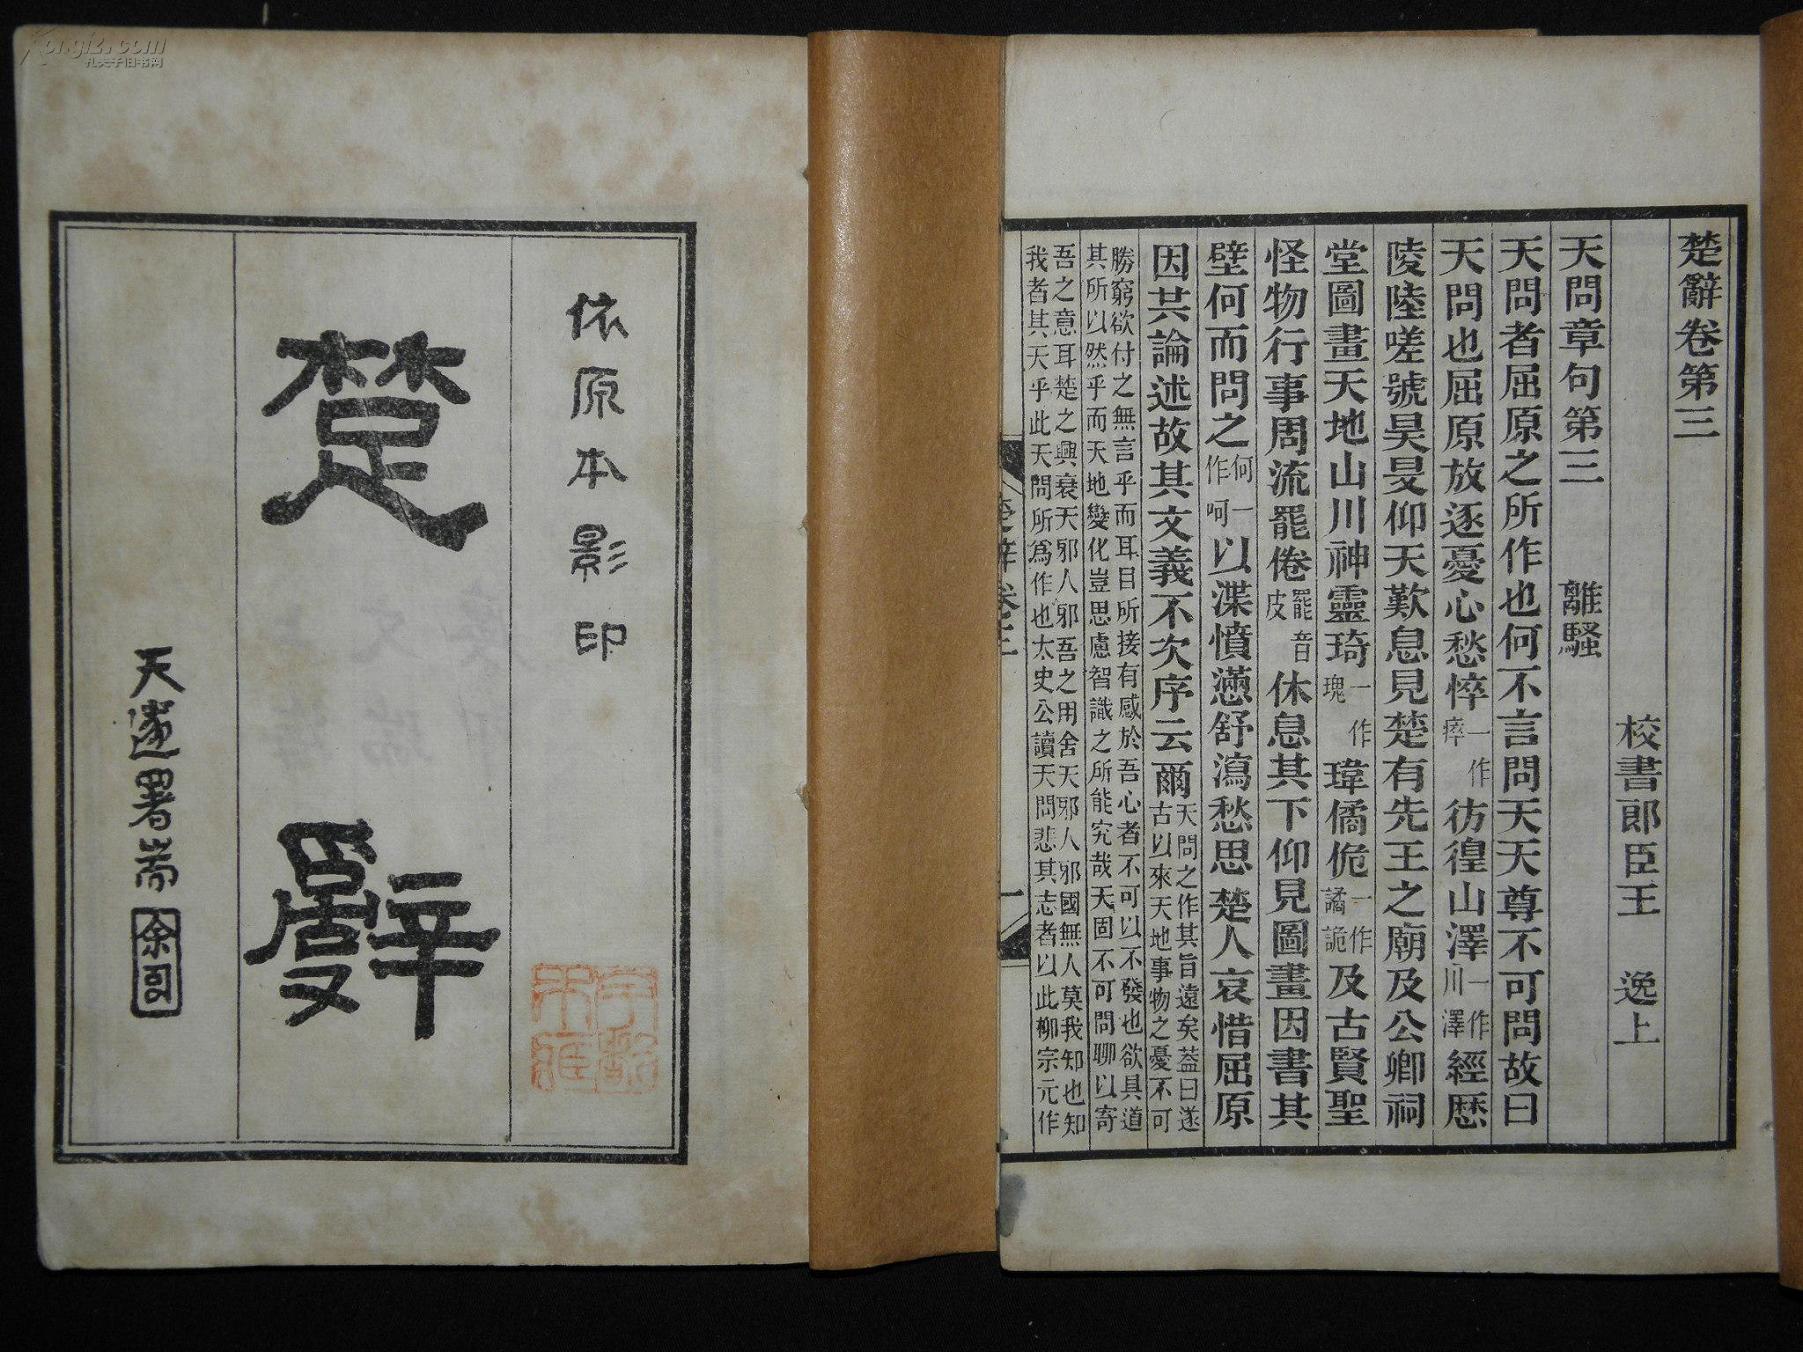 楚辭卷第三
校書郎臣王 逸上
天問章句第三 離騷
天問者屈原之所作也何不言問天天尊不可問故曰
天問也屈原放逐憂心愁悴一作瘁彷徨山澤一作川澤經歷
陵陸嗟號昊旻仰天歎息見楚有先王之廟及公卿祠
堂圖畫天地山川神靈琦一作瑰瑋僪佹一作譎詭及古賢聖
怪物行事周流罷倦罷音皮休息其下仰見圖畫因書其
壁何而問之何一作呵以渫憤懣舒瀉愁思楚人哀惜屈原
因共論述故其文義不次序云爾天問之作其旨遠矣蓋曰遂
古以來天地事物之憂不可
勝窮欲付之無言乎而耳目所接有感於吾心者不可以不發也欲具道
其所以然乎而天地變化豈思慮智識之所能究哉天固不可問聊以寄
吾之意耳楚之興衰天邪人邪吾之用舍天邪人邪國無人莫我知也知
我者其天乎此天問所為作也太史公讀天問悲其志者以此柳宗元作
楚辭卷三
一
依原本影印
楚辭
天遂署耑
余司
kongfz.com
孔夫子旧书网